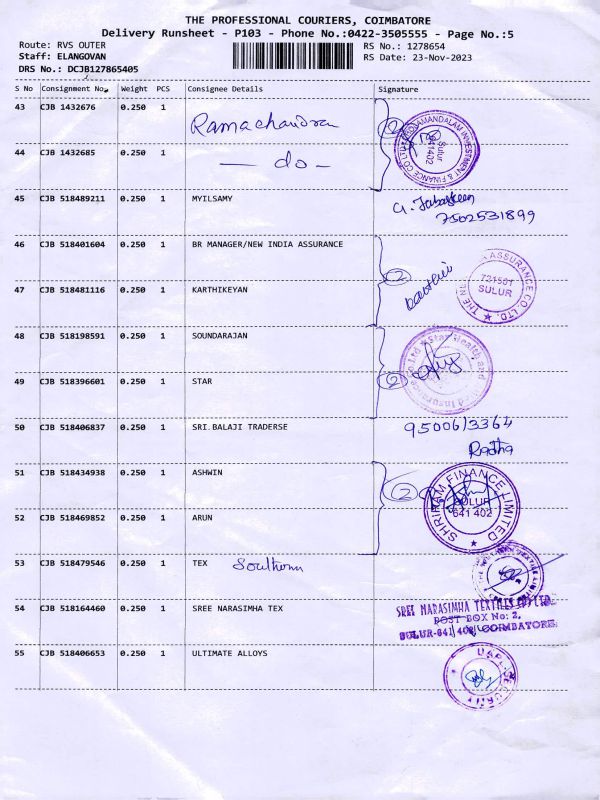 THE PROFESSIONAL COURIERS, COIMBATORE
Delivery Runsheet - P103 - Phone No.:0422-3505555 - Page No.:5
Route: RVS OUTER
Staff: ELANGOVAN
DRS No.: DCJB127865405
RS No.: 1278654
RS Date: 23-Nov-2023
S No Consignment No. Weight PCS Consignee Details Signature
43 CJB 1432676 0.250 1 Ramachandran
2
INVESTMENT & FINANCE CO LTD
Sulur
641402
44 CJB 1432685 0.250 1 — do —
45 CJB 518489211 0.250 1 MYILSAMY
7502531899
46 CJB 518401604 0.250 1 BR MANAGER/NEW INDIA ASSURANCE
2
ASSURANCE CO. LTD.
721501
SULUR
47 CJB 518481116 0.250 1 KARTHIKEYAN
48 CJB 518198591 0.250 1 SOUNDARAJAN
Star Health and
Insurance Co Ltd
49 CJB 518396601 0.250 1 STAR
2
50 CJB 518406837 0.250 1 SRI.BALAJI TRADERSE
9500613364
Radha
51 CJB 518434938 0.250 1 ASHWIN
2
SHRIRAM FINANCE LIMITED
SULUR
641 402
52 CJB 518469852 0.250 1 ARUN
53 CJB 518479546 1 0.250 TEX Southern
54 CJB 518164460 0.250 1 SREE NARASIMHA TEX
SREE NARASIMHA TEXTILES (P) LTD.
POST BOX No: 2,
SULUR-641 402, COIMBATORE
55 CJB 518406653 0.250 1 ULTIMATE ALLOYS
SECURITY